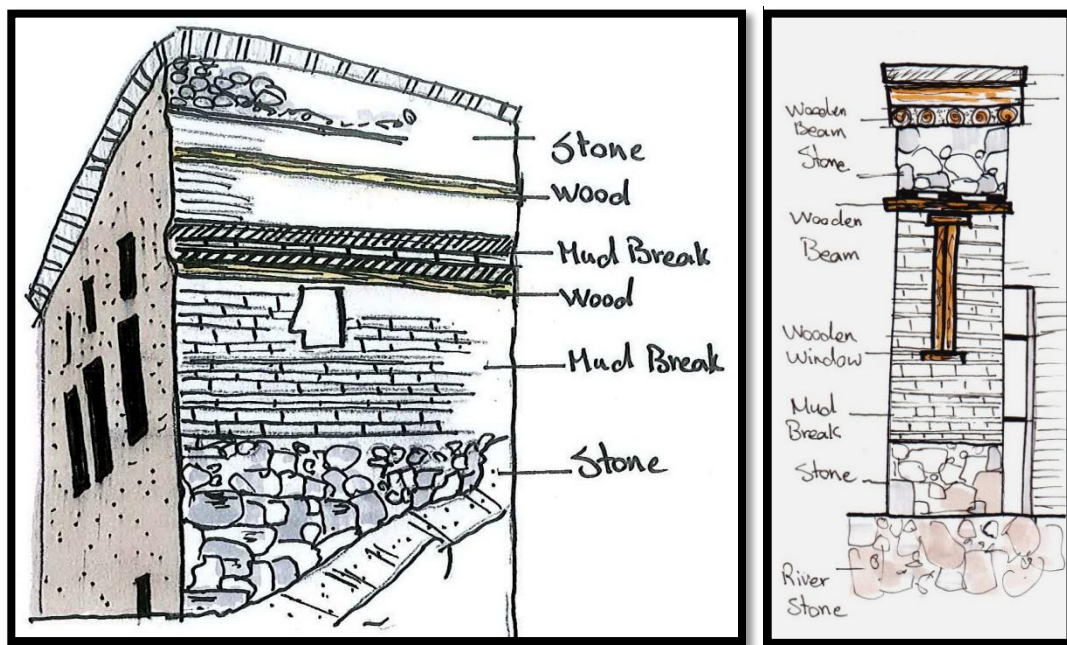 Stone
Wood
Mud Break
Wood
Mud Break
Stone
Wooden
Beam
Stone
Wooden
Beam
Wooden
Window
Mud
Break
Stone
River
Stone